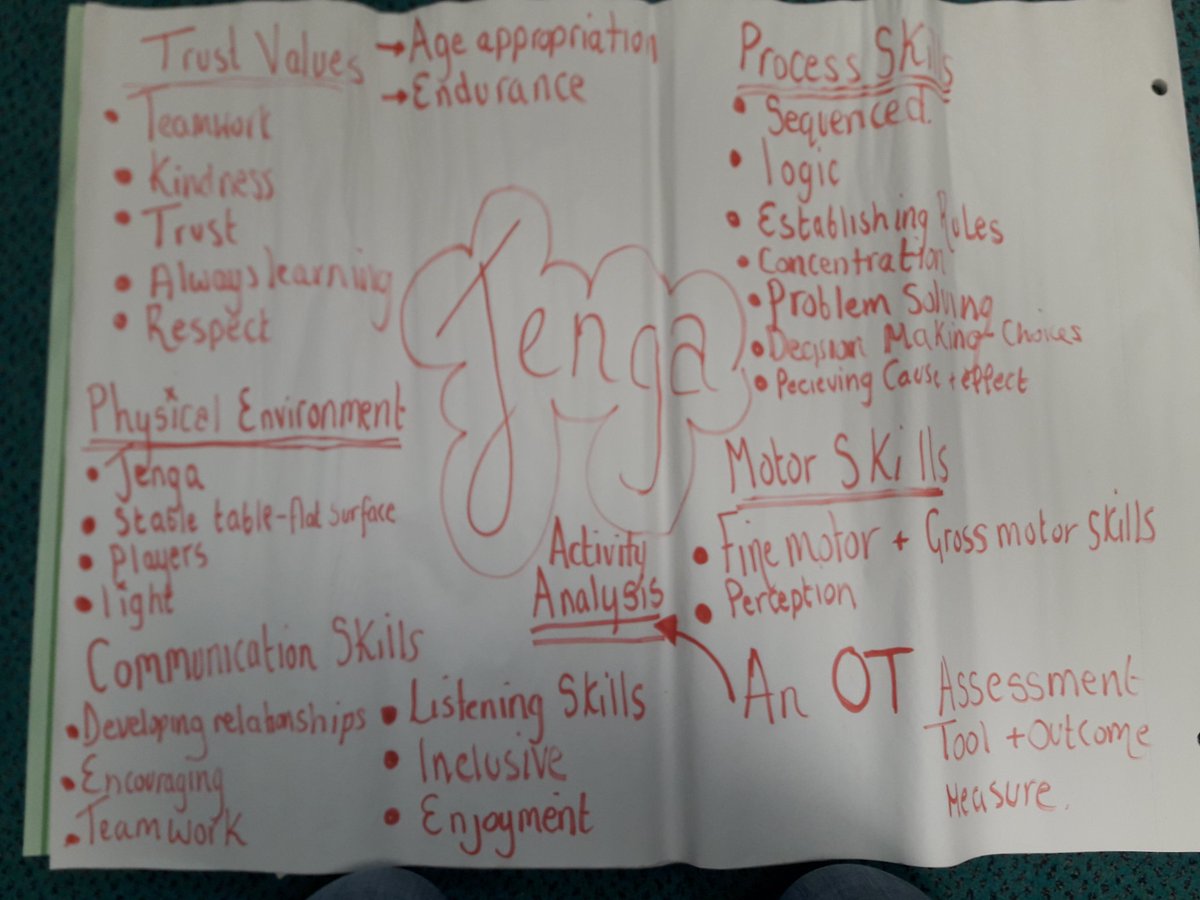 Trust Values
→ Age appropriation
→ Endurance
• Teamwork
• Kindness
• Trust
• Always learning
• Respect
Physical Environment
• Jenga
• Stable table-flat surface
• Players
• light
Communication Skills
• Developing relationships
• Encouraging
• Teamwork
• Listening Skills
• Inclusive
• Enjoyment
Jenga
Activity
Analysis
Process Skills
• Sequenced.
• logic
• Establishing Rules
• Concentration
• Problem Solving
• Decision Making- Choices
• Pecieving Cause + effect
Motor Skills
• Fine motor + Gross motor skills
• Perception
An OT Assessment
Tool + Outcome
Measure.